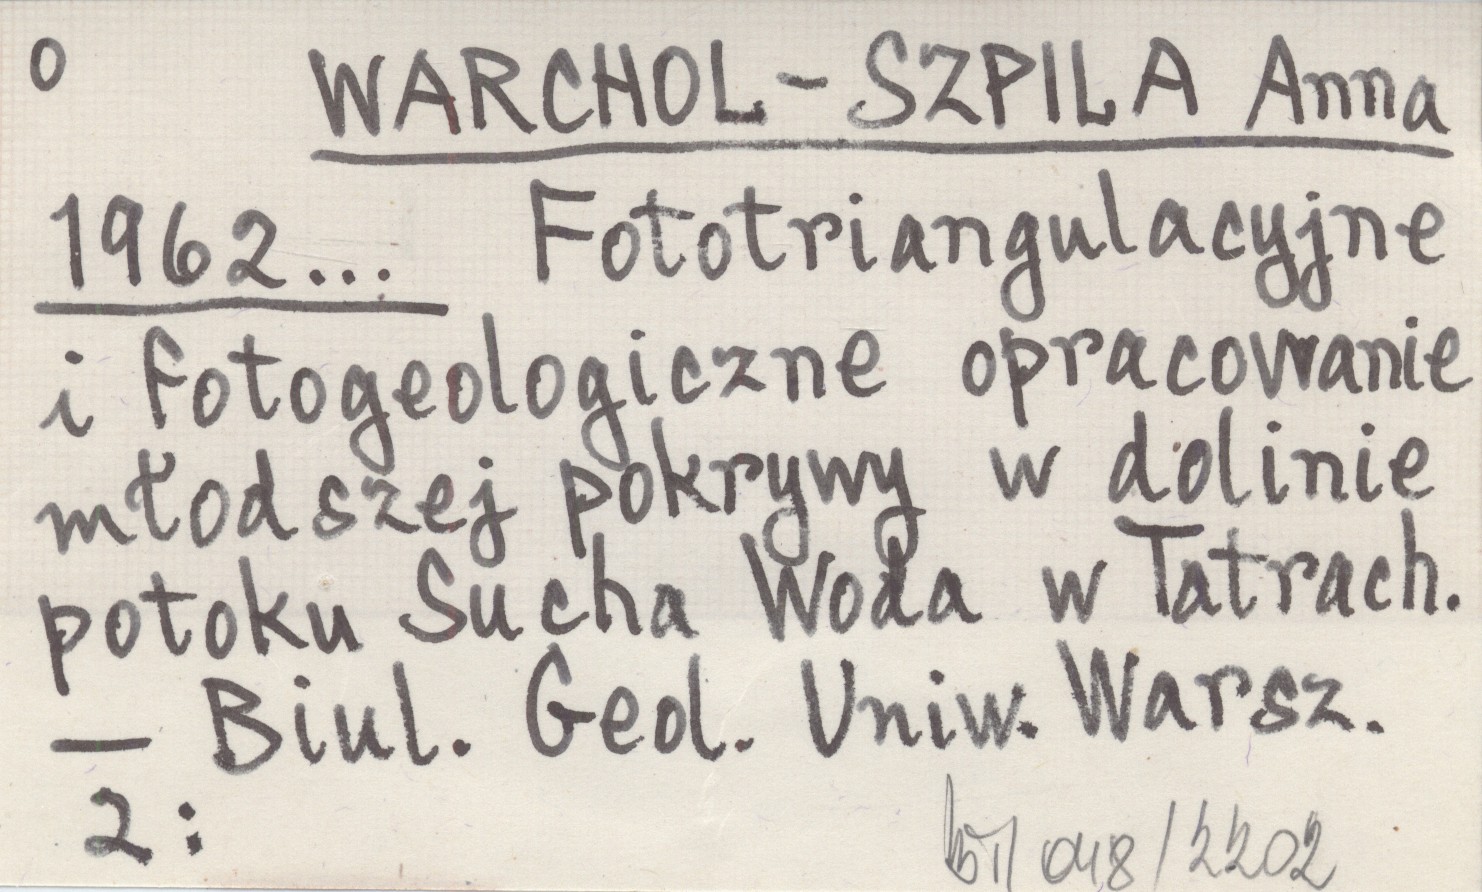 o WARCHOL - SZPILA Anna
1962... Fototriangulacyjne
i fotogeologiczne opracowanie
młodszej pokrywy w dolinie
potoku Sucha Woda w Tatrach.
— Biul. Geol. Uniw. Warsz.
2: 048/2202